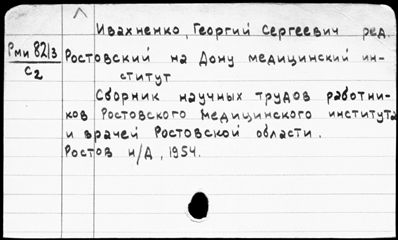 Ивахненко, Георгий Сергеевич ред.
Рми 82/3
С2
Ростовский на Дону медицинский ин-
ститут
Сборник научных трудов работни-
ков Ростовского медицинского института
и врачей Ростовской области.
Ростов н/Д, 1954.